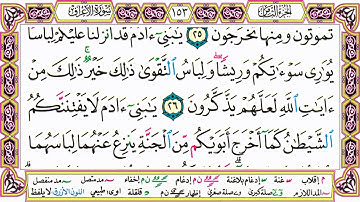 الجزء الثامن ١٥٣ سورة الأعراف
تموتون ومنها تخرجون ٢٥ يبنىٓ ءادم قد أنزلنا عليكم لباسا
يورى سوءتكم وريشا ولباس التقوى ذلك خير ذلك من
ءايت الله لعلهم يذكرون ٢٦ يبنىٓ ءادم لا يفتننكم
الشيطن كما أخرج أبويكم من الجنة ينزع عنهما لباسهما